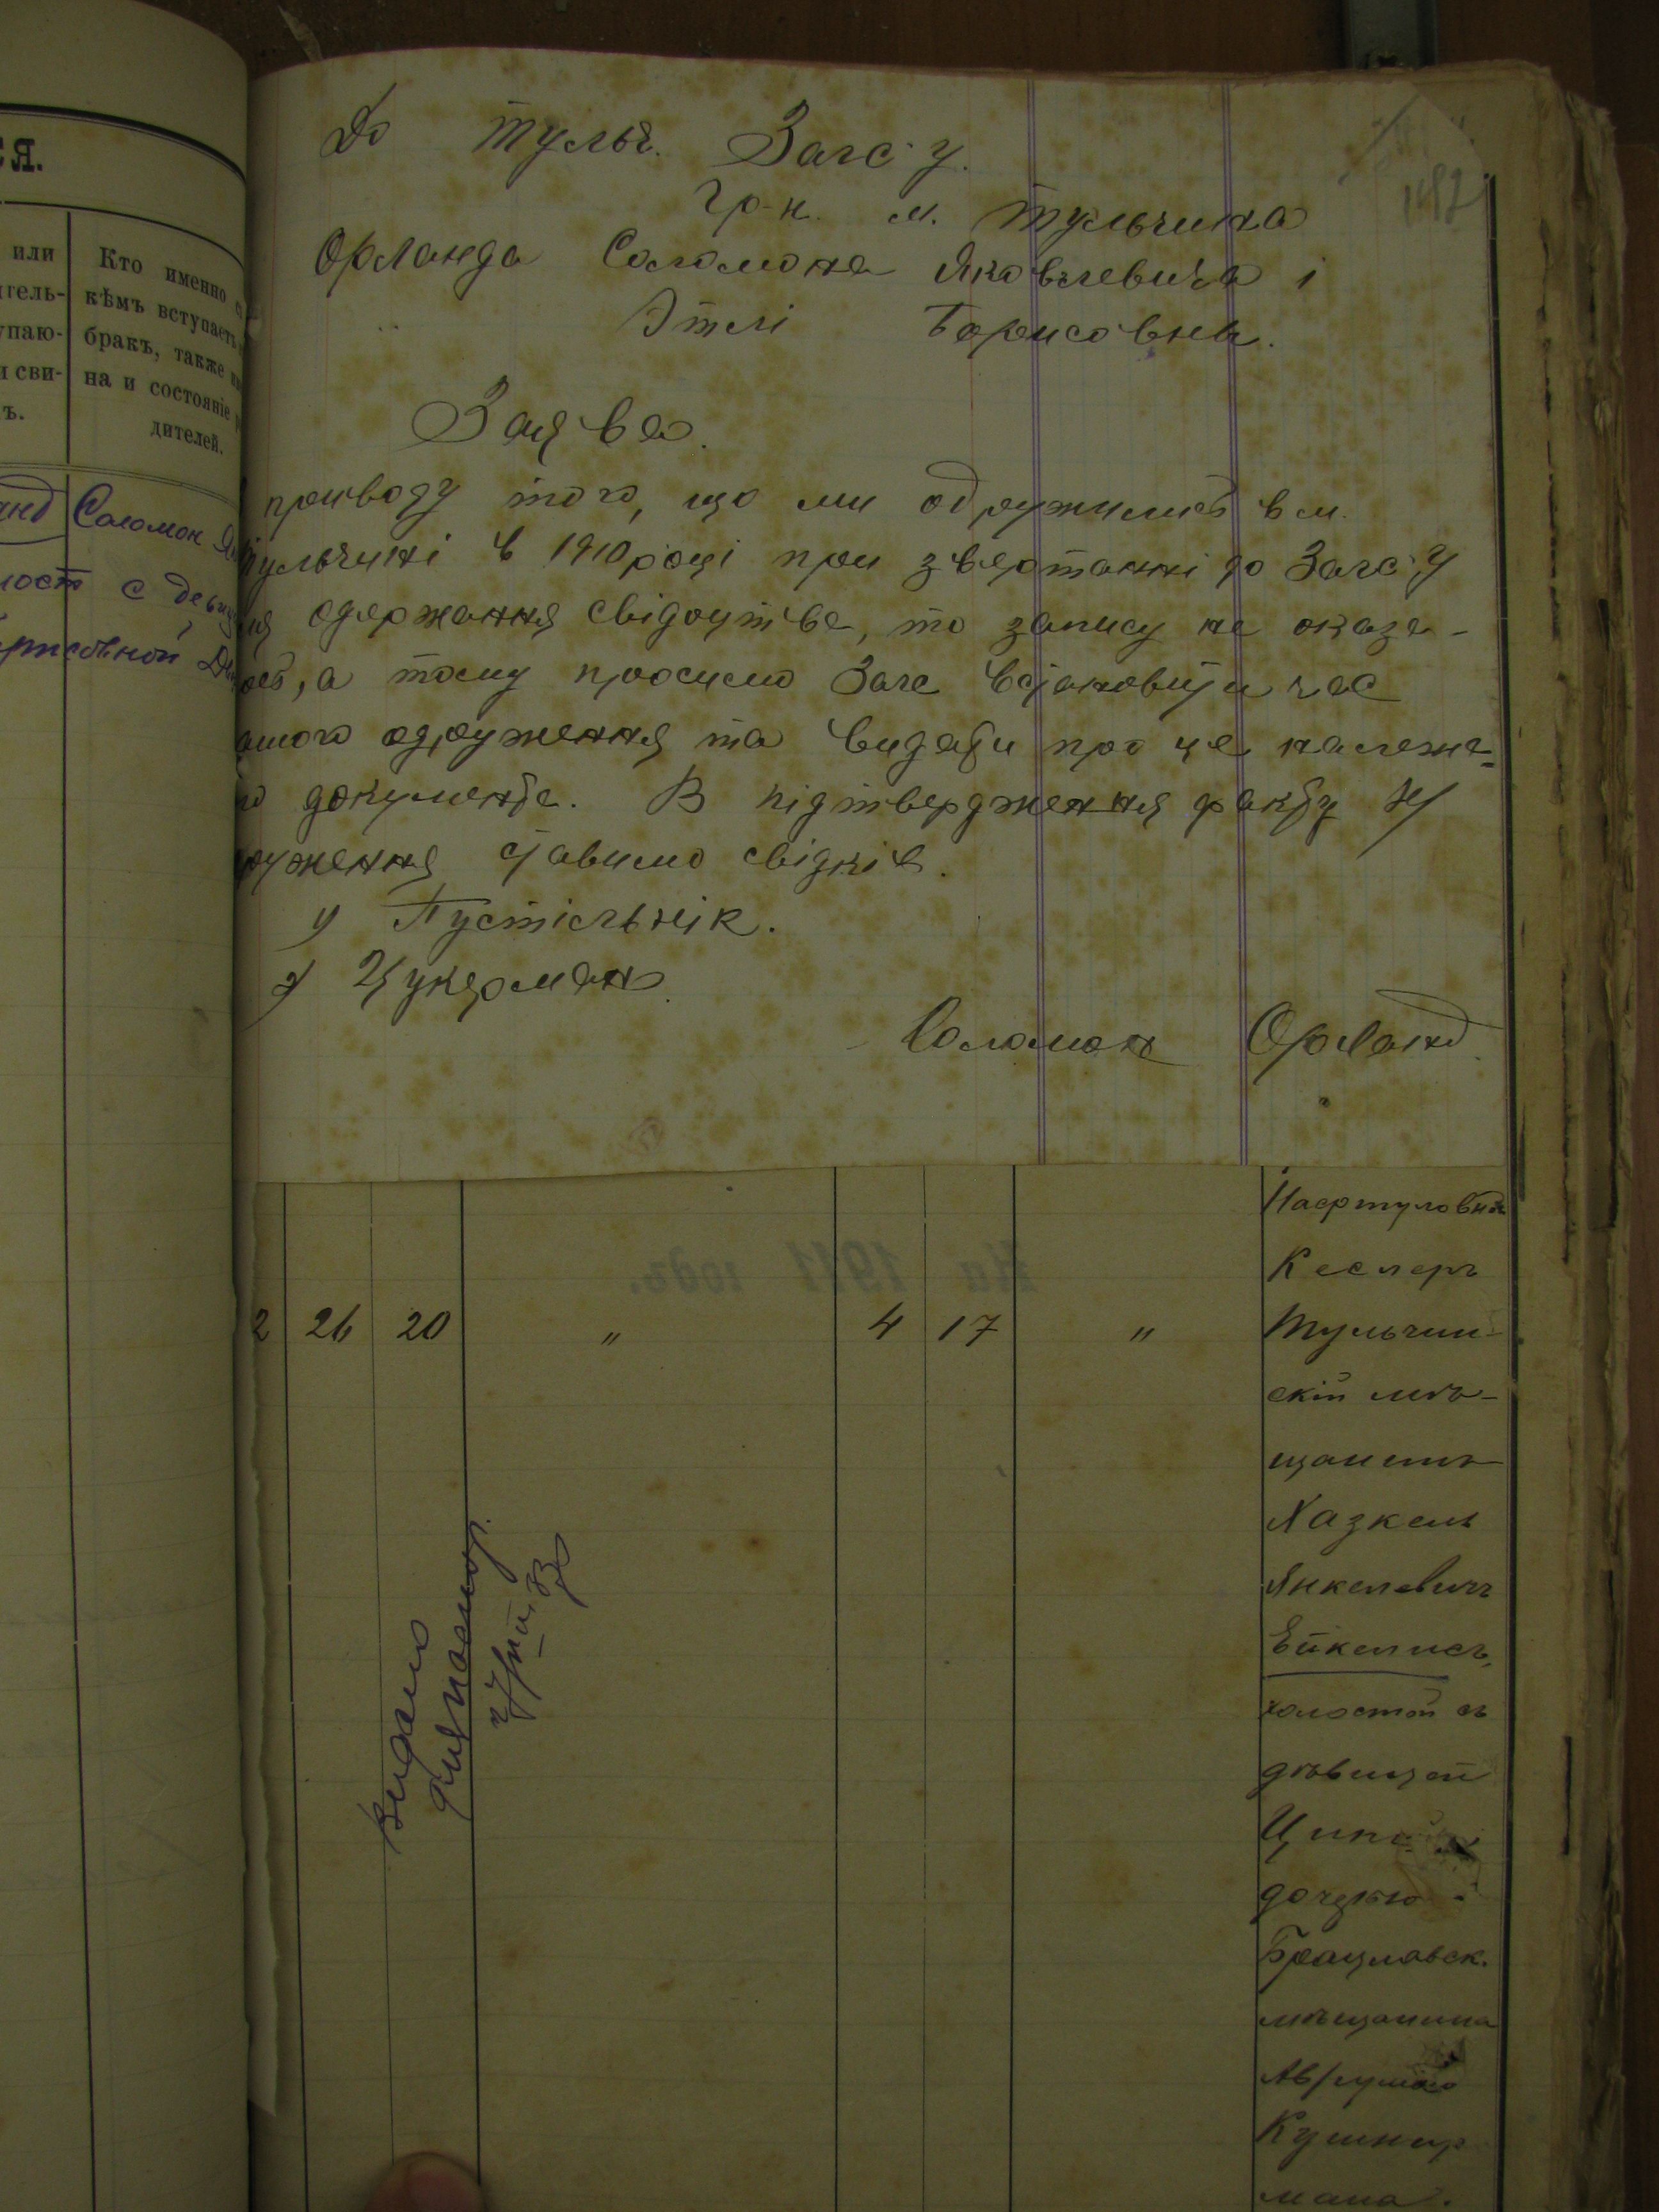 ся.
или
упаю-
и сви-
ъ.
Кто именно
кѣмъ вступаетъ
бракъ, также
на и состояніе
дителей.
Соломон
с
До Тульч. Загс'у.
Гр-н. м. Тульчина
Орланда Соломона Яковлевича і
Этлі Борисовни.
Заява.
приводу того, що ми одружились в м.
Тульчині в 1910 році при звертанні до Загс'у
одержання свідоцтва, то запису не оказа-
ось, а тому просимо Загс встановити час
ашого одруження та видати про це належ-
документа. В підтвердження факту
руження ставимо свідків.
1) Пустільнік.
2) Цукерман.
Соломон Орланд
На 1911 годъ.
Нафтуловна
Кеслеръ
2 26 20 " 4 17 " Тульчин-
скій мѣ-
щанинъ
Хазкель
Янкелевичъ
Ейкелисъ,
холостой съ
дѣвицей
дочерью
Брацлавск.
мѣщанина
Аврума
Кушнир
мана.
Видано
для паспор.